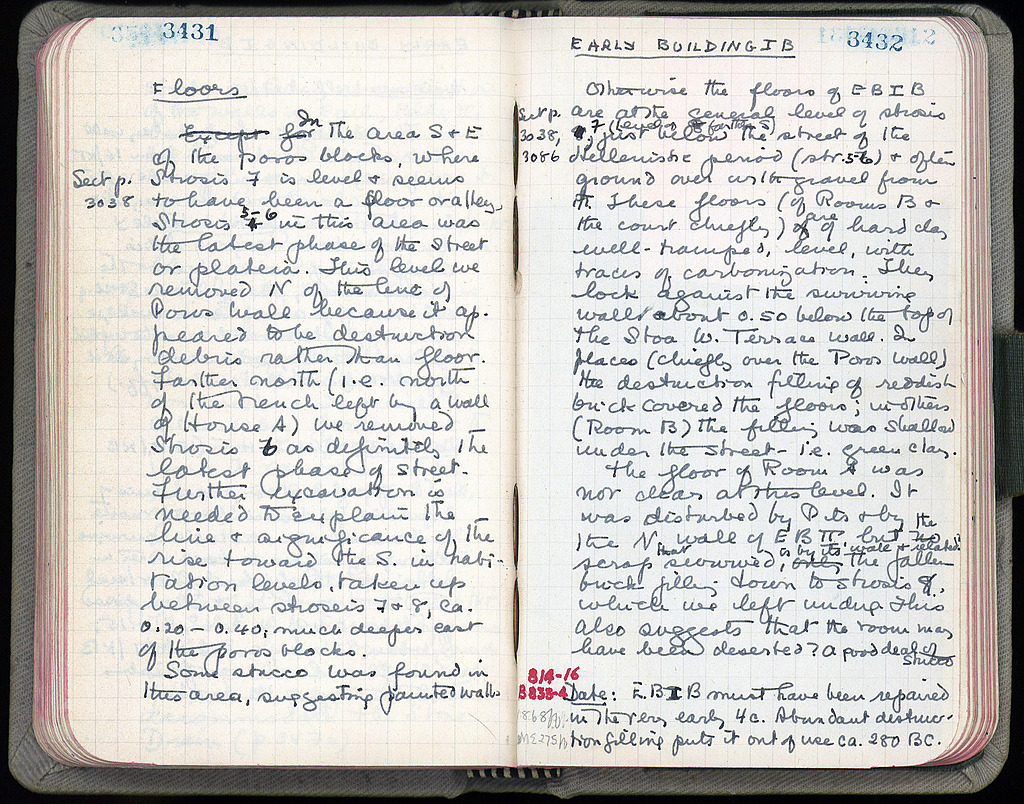 3431
Floors
Except for In the area S + E
of the poros blocks, where
Sect p. 3038
Strosis 7 is level & seems
to have been a floor or alley.
Strosis 5-6 in this area was
the latest phase of the Street
or plateia. This level we
removed N of the line of
Poros wall because it ap-
peared to be destruction
debris rather than floor.
Farther north (i.e. north
of the trench left by a wall
of House A) we removed
Strosis 6 as definitely the
latest phase of street.
Further excavation is
needed to explain the
line & significance of the
rise toward the S. in habi-
tation levels, taken up
between stroseis 7 & 8, ca.
0.20 - 0.40; much deeper east
of the poros blocks.
Some stucco was found in
this area, suggesting painted walls
3432
EARLY BUILDING IB
Otherwise the floors of EBIB
are at the general level of strosis
Sect p. 3038, 3086
7 (level 8 farther S)
just below the street of the
Hellenistic period (str. 5-6) & often
ground over with gravel from
it. These floors (of Rooms B &
the court chiefly) are of hard clay
well-tramped, level, with
traces of carbonization. They
lock against the surviving
walls about 0.50 below the top of
the Stoa W. Terrace wall. In
places (chiefly over the Poros wall)
the destruction filling of reddish
brick covered the floors; in others
(Room B) the filling was shallow
under the street - i.e. green clay.
The floor of Room A was
not clear at this level. It
was disturbed by Pits & by the
the N wall of EB II, but no
scrap survived, as by its wall & related
that only the fallen
brick filling down to strosis 8,
which we left undug. This
also suggests that the room may
have been deserted? A good deal of
stucco
814-16
B833-4
Date: EBIB must have been repaired
in the very early 4c. Abundant destruc-
tion filling puts it out of use ca. 280 BC.